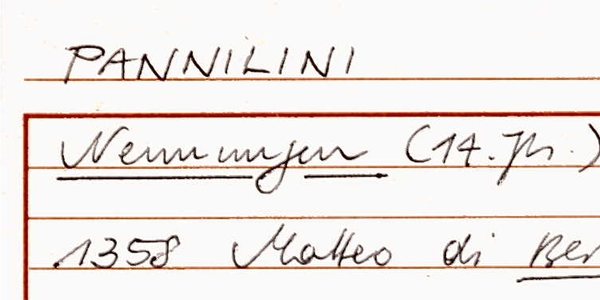 PANNILINI
Nennungen (14. Jh.)
1358 Matteo di Ber